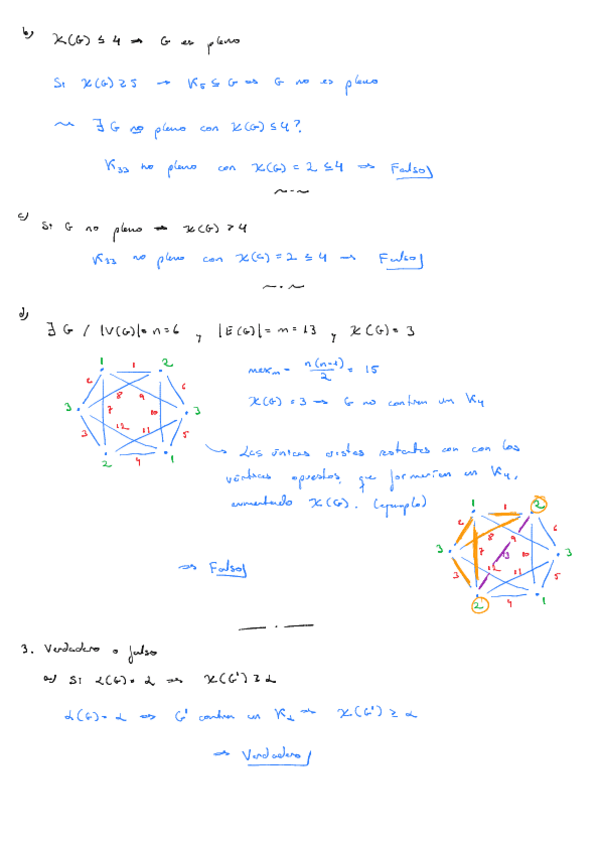 b) χ(G) ≤ 4 → G es plano
Si χ(G) ≥ 5 → K₅ ⊆ G ⇒ G no es plano
∃ G no plano con χ(G) ≤ 4?
K₃₃ no plano con χ(G) = 2 ≤ 4 ⇒ Falso
c) Si G no plano → χ(G) > 4
K₃₃ no plano con χ(G) = 2 ≤ 4 → Falso
d) ∃ G / |V(G)| = n = 6 y |E(G)| = m = 13 y χ(G) = 3
1 1 2
6 8 9 6
3 7 10 3
3 12 11 5
2 4 1
max m = n(n-1)/2 = 15
χ(G) = 3 → G no contien un K₄
Las únicas aristas restantes son con los
vértices opuestos, que formarían un K₄,
aumentando χ(G). (ejemplo)
1 1 2
6 8 9 6
3 7 13 10 3
3 12 11 5
2 4 1
⇒ Falso
3. Verdadero o falso
a) Si α(G) = α ⇒ χ(G') ≥ α
α(G) = α ⇒ G' contien un Kα ⇒ χ(G') ≥ α
⇒ Verdadero